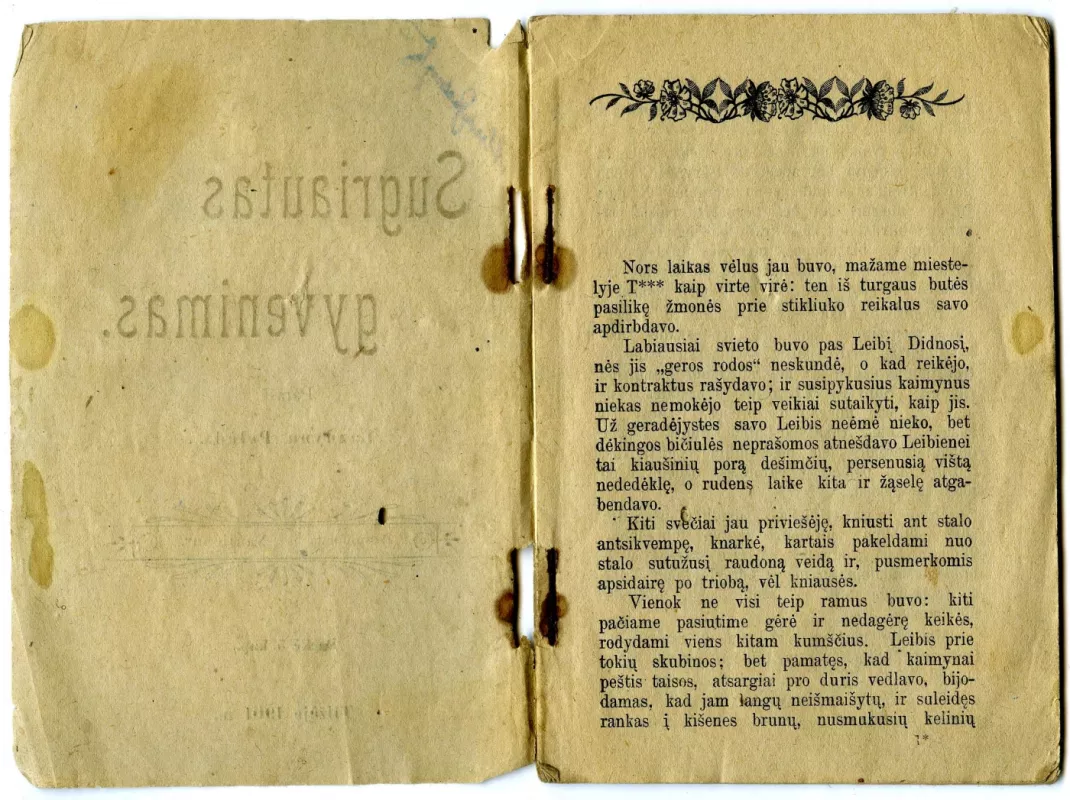 Sugriautas
gyvenimas.
Nors laikas vėlus jau buvo, mažame mieste-
lyje T*** kaip virte virė: ten iš turgaus butės
pasilikę žmonės prie stikliuko reikalus savo
apdirbdavo.
Labiausiai svieto buvo pas Leibį Didnosį,
nės jis „geros rodos“ neskundė, o kad reikėjo,
ir kontraktus rašydavo; ir susipykusius kaimynus
niekas nemokėjo teip veikiai sutaikyti, kaip jis.
Už geradėjystes savo Leibis neėmė nieko, bet
dėkingos bičiulės neprašomos atnešdavo Leibienei
tai kiaušinių porą dešimčių, persenusią vištą
nededėklę, o rudens laike kita ir žąselę atga-
bendavo.
Kiti svečiai jau priviešėję, kniusti ant stalo
antsikvempę, knarkė, kartais pakeldami nuo
stalo sutužusį raudoną veidą ir, pusmerkomis
apsidairę po triobą, vėl kniausės.
Vienok ne visi teip ramus buvo: kiti
pačiame pasiutime gėrė ir nedagėrę keikės,
rodydami viens kitam kumščius. Leibis prie
tokių skubinos; bet pamatęs, kad kaimynai
peštis taisos, atsargiai pro duris vedlavo, bijo-
damas, kad jam langų neišmaišytų, ir suleidęs
rankas į kišenes brunų, nusmukusių kelinių
1*